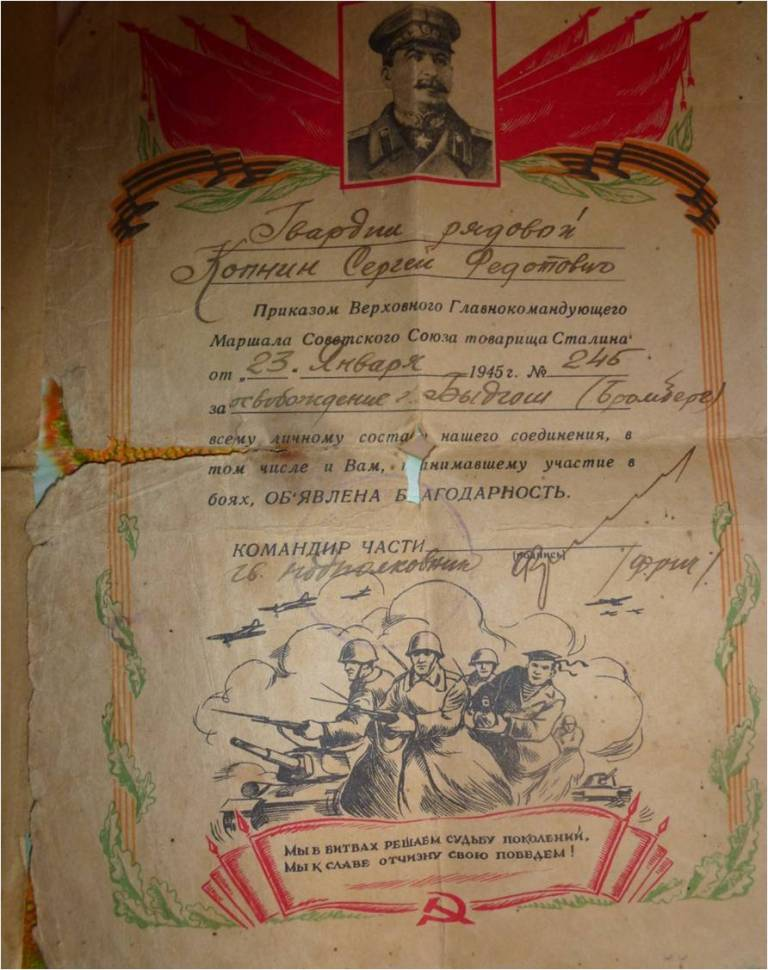 Гвардии рядовой
Копнин Сергей Федотович
Приказом Верховного Главнокомандующего
Маршала Советского Союза товарища Сталина
от „23“ Января 1945 г. № 246
за освобождение г. Быдгощ (Бромберг)
всему личному составу нашего соединения, в
том числе и Вам, принимавшему участие в
боях, ОБ'ЯВЛЕНА БЛАГОДАРНОСТЬ.
КОМАНДИР ЧАСТИ
(подпись)
гв. подполковник
Мы в битвах решаем судьбу поколений,
Мы к славе отчизну свою поведем!